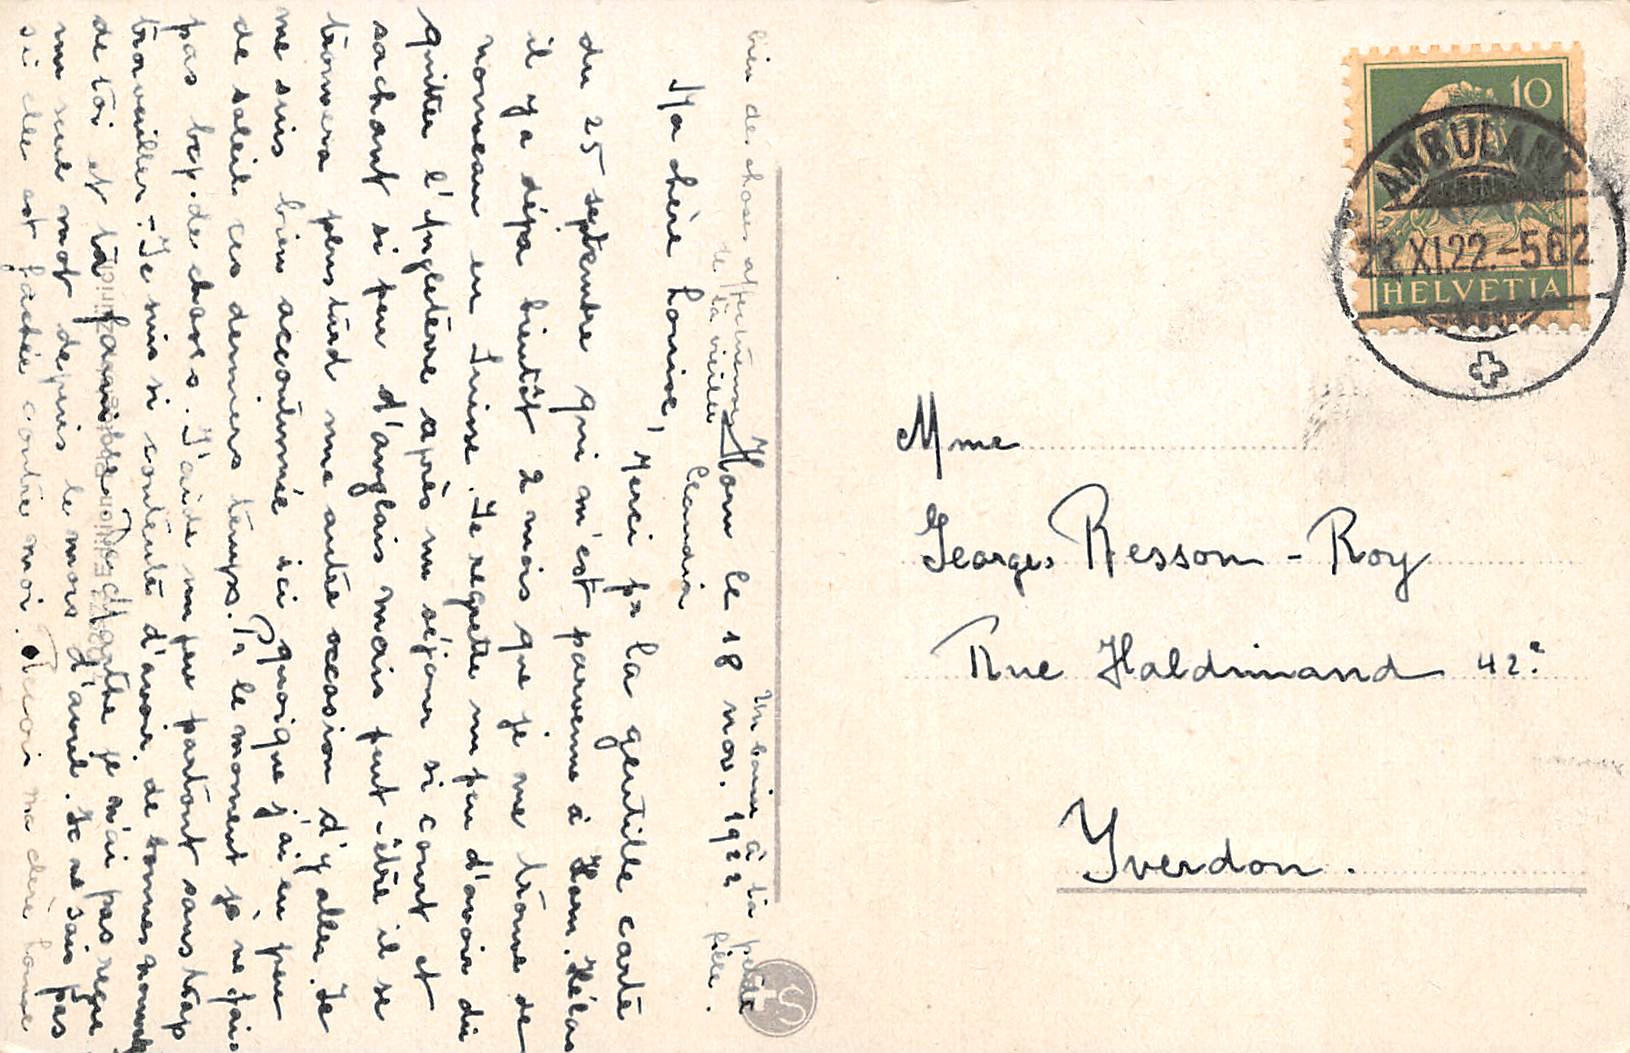 Ham le 18 nov. 1922
Ma chère Louise,
Merci pr la gentille carte
du 25 septembre qui m'est parvenue à Ham. Hélas
il y a déjà bientôt 2 mois que je me trouve de
nouveau en Suisse. Je regrette un peu d'avoir dû
quitter l'Angleterre après un séjour si court et
sachant si peu d'anglais mais peut-être il se
trouvera plus tard une autre occasion d'y aller. Je
me suis bien accoutumée ici quoique j'ai eu peu
de soleil ces derniers temps. Pr le moment je ne fais
pas bcp. de choses. J'aide un peu partout sans trop
travailler. Je suis si contente d'avoir de bonnes nouv.
de toi et ta famille. De Marthe je n'ai pas reçu
un seul mot depuis le mois d'avril. Je ne sais pas
si elle est fâchée contre moi. Reçois ma chère Louise
bien des choses affectueuses
de ta vieille
Claudia
Un baiser à ta petite
fille.
10
AMBULANT
22.XI.22.-562
HELVETIA
Mme
Georges Resson-Roy
Rue Haldimand 42.e
Yverdon.
S